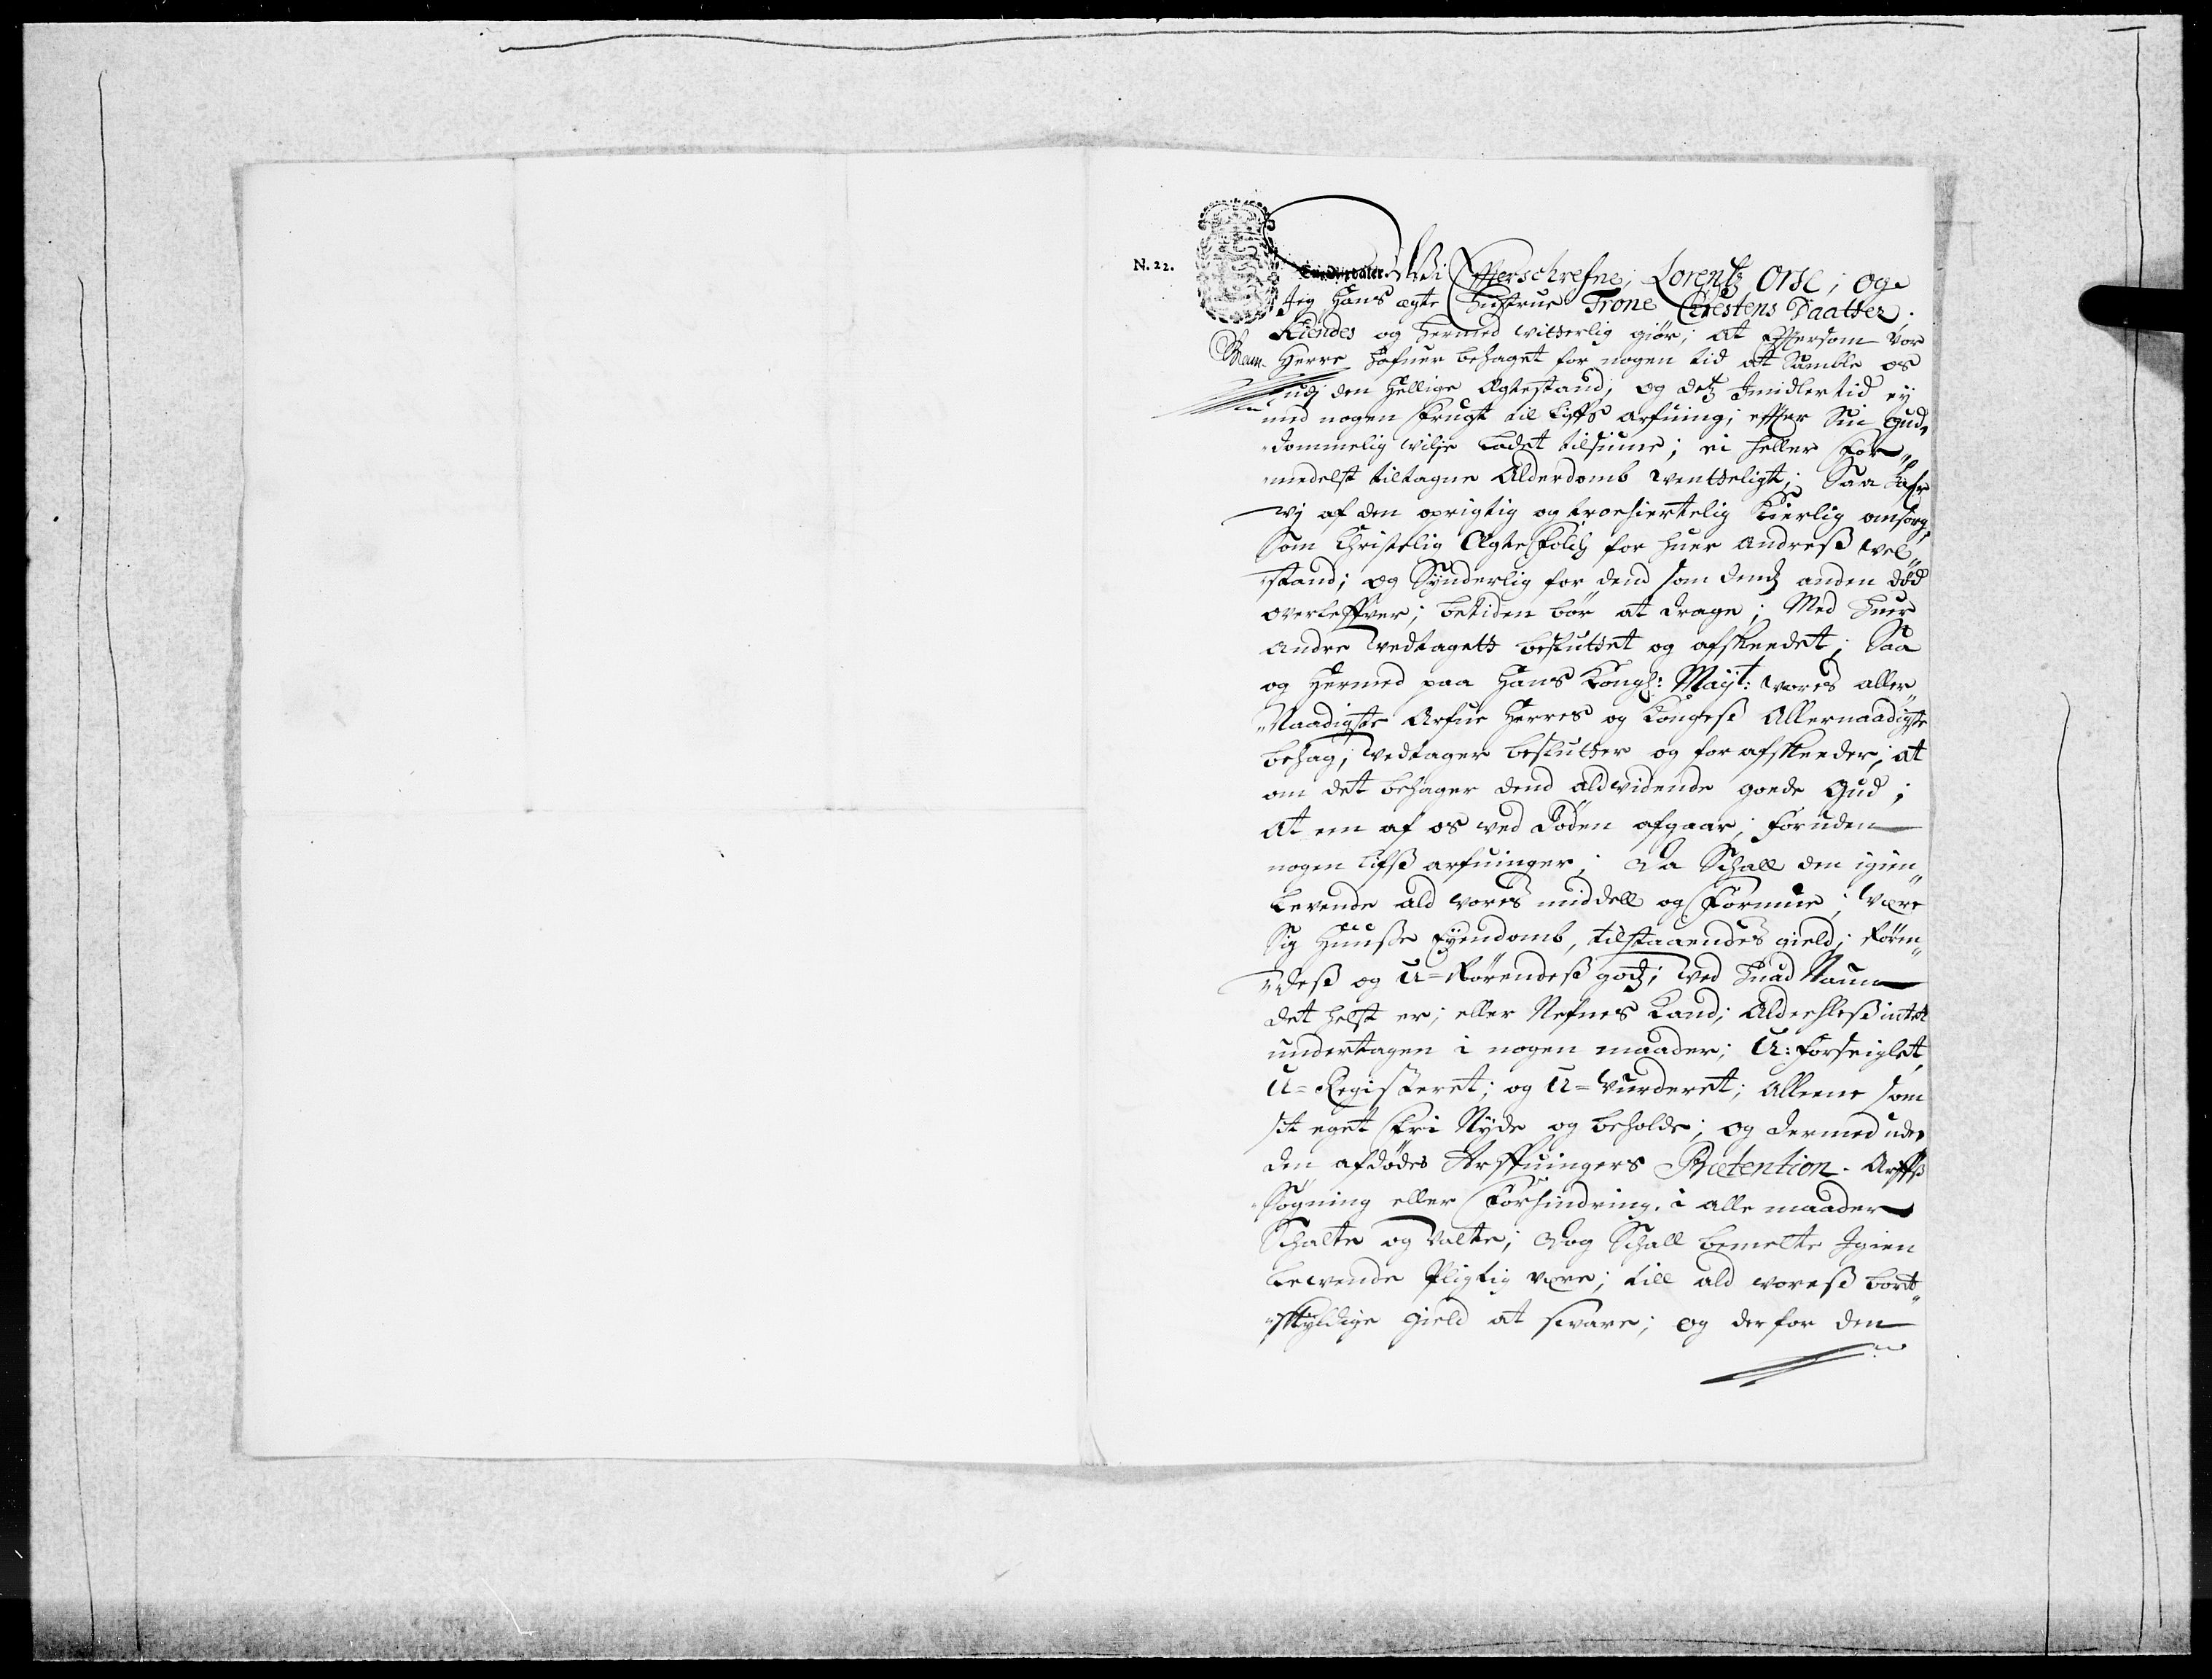 N. 22.
Wi Efferschrefne; Lorentz Orse; og
Jeg Hans ægte Hustrue Trone Chrestens Daatter.
Kiendes og hermed witterlig giør; at Effersom Vor
Herre hafuer behaget for nogen tid at Samble os
udj den Hellige Ægtestand; og detz Imidlertid ey
med nogen Frugt til Liffs arfuing; effter Sin gud„
dommelig wilje ladet tilsinne; ei heller For„
medelst tiltagne Alderdomb wentteligt; Saa hafr
wj af den oprigtig og troehiertelig Kierlig omsorg,
Som Christelig Ægte Folch for huer andreß wel„
stand; og Synderlig for dend som dend anden død
overleffver; betiden bør at drage; Med huer
andre vedtagett besluttet og afskeedet; Saa
og Hermed paa Hans Kongl: Mayt: vores aller„
Naadigste Arfue Herres og Kongeß Allernaadigste
behag; vedtager beslutter og for afskeeder; at
om det behager dend aldvidende goede Gud;
At een af os ved Døden afgaar; foruden
nogen lifß arfuinger; da Schall den igien„
Levende ald vores middell og Formue; være
Sig Huuße Eyendomb, tilstaaendes gield; Røren„
deß og U=Rørendeß godz; ved huad Naun
det helst er; eller Nefnes kand; Aldeeleß intet
undertagen i nogen maader; U:forseiglet,
U=Registeret; og U=Vurderet; Alleene som
sit eget Fri Nyde og beholde; og dermed uden
den afdødes Arffuingers Prætention. Arffß
Søgning eller Forhindring. i alle maader
Schalte og Valte; dog Schall bemelte Igien
Levende Pligtig være; till ald voreß bort„
skyldige gield at svare; og derfor den